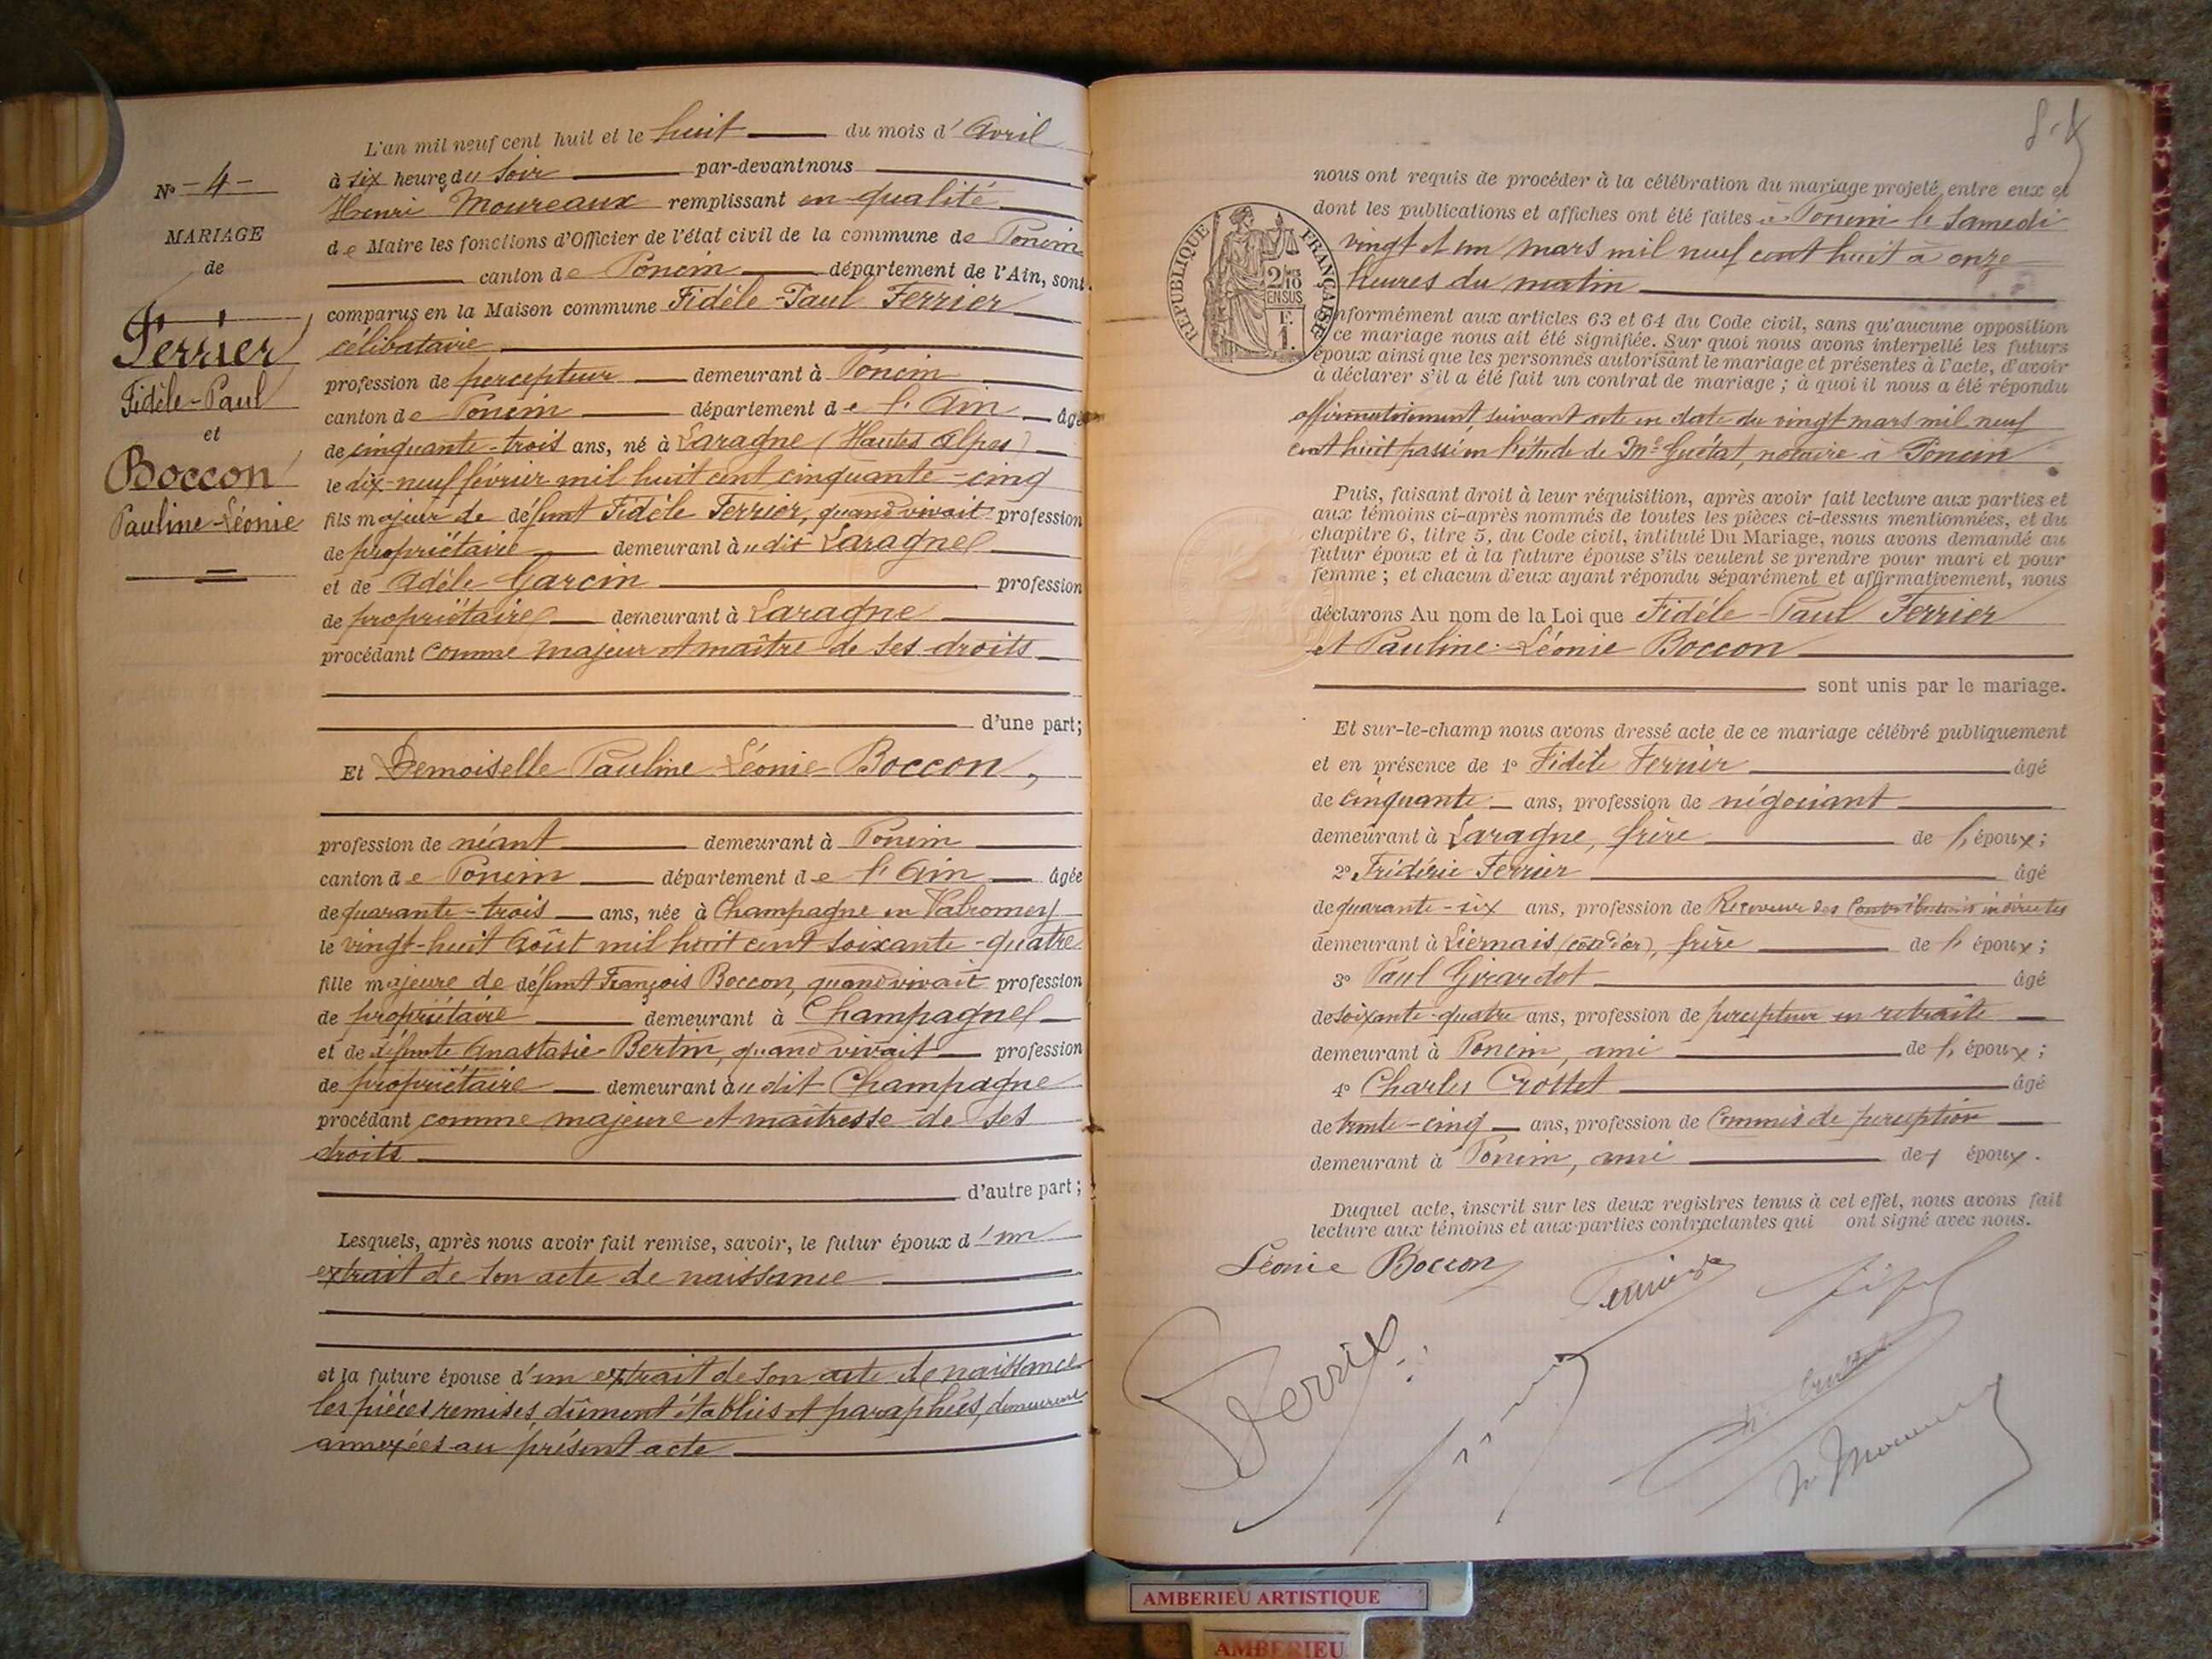 L'an mil neuf cent huit et le huit du mois d'Avril
à six heures du soir par-devant nous
Henri Moureaux remplissant en qualité
de Maire les fonctions d'Officier de l'état civil de la commune de Poncin
canton de Poncin département de l'Ain, sont
comparus en la Maison commune Fidèle-Paul Ferrier
célibataire
profession de percepteur demeurant à Poncin
canton de Poncin département de l'Ain âgé
de cinquante-trois ans, né à Laragne (Hautes Alpes)
le dix-neuf février mil huit cent cinquante-cinq
fils majeur de défunt Fidèle Ferrier, quand vivait profession
de propriétaire demeurant audit Laragne
et de Adèle Garcin profession
de propriétaire demeurant à Laragne
procédant comme majeur et maître de ses droits
d'une part;
Et Demoiselle Pauline Léonie Boccon,
profession de néant demeurant à Poncin
canton de Poncin département de l'Ain âgée
de quarante-trois ans, née à Champagne en Valromey
le vingt-huit Août mil huit cent soixante-quatre
fille majeure de défunt François Boccon, quand vivait profession
de propriétaire demeurant à Champagne
et de défunte Anastasie Bertin, quand vivait profession
de propriétaire demeurant audit Champagne
procédant comme majeure et maîtresse de ses
droits
d'autre part;
Lesquels, après nous avoir fait remise, savoir, le futur époux d'un
extrait de son acte de naissance
et la future épouse d'un extrait de son acte de naissance
les pièces remises, dûment établies et paraphées, demeurent
annexées au présent acte
N° -4-
MARIAGE
de
Ferrier
Fidèle-Paul
et
Boccon
Pauline-Léonie
nous ont requis de procéder à la célébration du mariage projeté entre eux et
dont les publications et affiches ont été faites à Poncin le Samedi
vingt et un mars mil neuf cent huit à onze
heures du matin
RÉPUBLIQUE FRANÇAISE
2/10
EN SUS
F.
1.
conformément aux articles 63 et 64 du Code civil, sans qu'aucune opposition
à ce mariage nous ait été signifiée. Sur quoi nous avons interpellé les futurs
époux ainsi que les personnes autorisant le mariage et présentes à l'acte, d'avoir
à déclarer s'il a été fait un contrat de mariage ; à quoi il nous a été répondu
affirmativement, suivant acte en date du vingt mars mil neuf
cent huit passé en l'étude de Me Guétat, notaire à Poncin
Puis, faisant droit à leur réquisition, après avoir fait lecture aux parties et
aux témoins ci-après nommés de toutes les pièces ci-dessus mentionnées, et du
chapitre 6, titre 5, du Code civil, intitulé Du Mariage, nous avons demandé au
futur époux et à la future épouse s'ils veulent se prendre pour mari et pour
femme ; et chacun d'eux ayant répondu séparément et affirmativement, nous
déclarons Au nom de la Loi que Fidèle-Paul Ferrier
et Pauline-Léonie Boccon
sont unis par le mariage.
Et sur-le-champ nous avons dressé acte de ce mariage célébré publiquement
et en présence de 1° Fidèle Ferrier âgé
de cinquante ans, profession de négociant
demeurant à Laragne, frère de l'époux;
2° Frédéric Ferrier âgé
de quarante-six ans, profession de Receveur des Contributions indirectes
demeurant à Liernais (côte d'or), frère de l'époux;
3° Paul Girardot âgé
de soixante-quatre ans, profession de percepteur en retraite
demeurant à Poncin, ami de l'époux;
4° Charles Crottet âgé
de trente-cinq ans, profession de Commis de perception
demeurant à Poncin, ami de l'époux.
Duquel acte, inscrit sur les deux registres tenus à cet effet, nous avons fait
lecture aux témoins et aux parties contractantes qui ont signé avec nous.
Léonie Boccon
Ferrier
AMBERIEU ARTISTIQUE
AMBERIEU